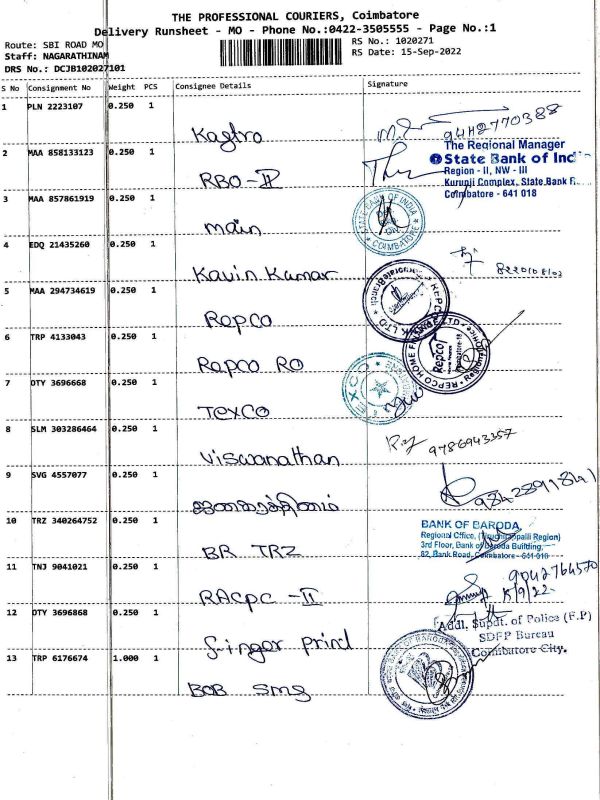 THE PROFESSIONAL COURIERS, Coimbatore
Delivery Runsheet - MO - Phone No.:0422-3505555 - Page No.:1
Route: SBI ROAD MO
RS No.: 1020271
Staff: NAGARATHINAM
RS Date: 15-Sep-2022
DRS No.: DCJB102027101
S No Consignment No Weight PCS Consignee Details Signature
1 PLN 2223107 0.250 1
Kagtro
9442770388
2 MAA 858133123 0.250 1
RBO-II
The Regional Manager
State Bank of Ind
Region - II, NW - III
Kurunji Complex, State Bank R
Coimbatore - 641 018
3 MAA 857861919 0.250 1
main
STATE BANK OF INDIA
COIMBATORE
4 EDQ 21435260 0.250 1
Kavin Kumar
5 MAA 294734619 0.250 1
Repco
6 TRP 4133043 0.250 1
Repco RO
REPCO HOME FINANCE LTD
Repco
7 OTY 3696668 0.250 1
Texco
TEXCO
8 SLM 303286464 0.250 1
Viswanathan
9786943357
9 SVG 4557077 0.250 1
9842891841
10 TRZ 340264752 0.250 1
BR TRZ
BANK OF BARODA,
Regional Office, (Tiruchirappalli Region)
3rd Floor, Bank of Baroda Building,
82, Bank Road, Coimbatore - 641 018
11 TNJ 9041021 0.250 1
RACPC -II
9042764570
15/9/22
12 OTY 3696868 0.250 1
finger prind
Addl. Supdt. of Police (F.P)
SDFP Bureau
Coimbatore City.
13 TRP 6176674 1.000 1
BOB SMS
BANK OF BARODA